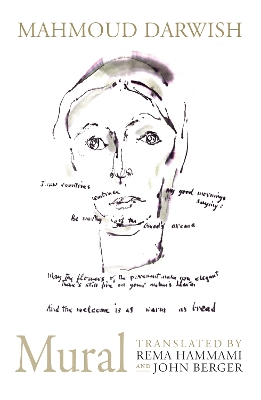 MAHMOUD DARWISH
I saw countries
embrace
my good mornings
saying:
Be worthy of the bread's aroma
May the flowers of the pavement make you elegant
there's still fire on your mother's
And the welcome is as warm as bread
Mural
TRANSLATED BY
REMA HAMMAMI
AND JOHN BERGER